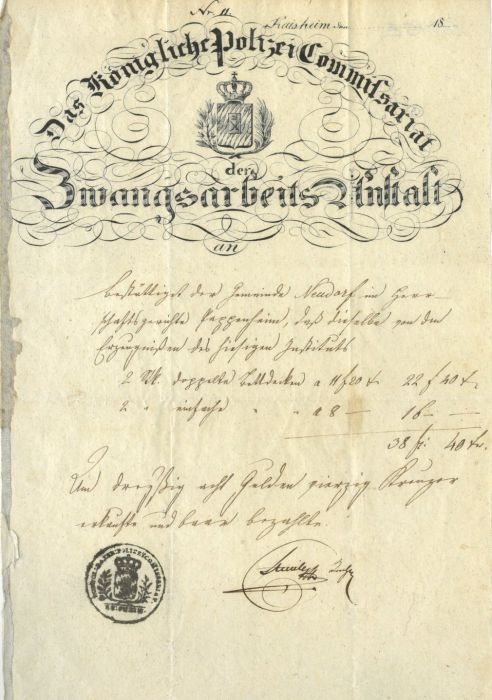 Nr. 11.
Kaisheim den 18
Das Königliche Polizei Commissariat
der
Zwangsarbeits Anstalt
an
bestättiget der Gemeinde Neudorf im Herr-
schaftsgerichte Pappenheim, daß dieselbe von den
Erzeugnißen des hiesigen Instituts
2 Stk. doppelte Bettdecken a 11 f 20 x. 22 f 40 x.
2 " einfache " " a 8 — 16 — —
38 fl. 40 xr.
Um dreyßig acht Gulden vierzig Kreuzer
erkaufte und baar bezahlte.